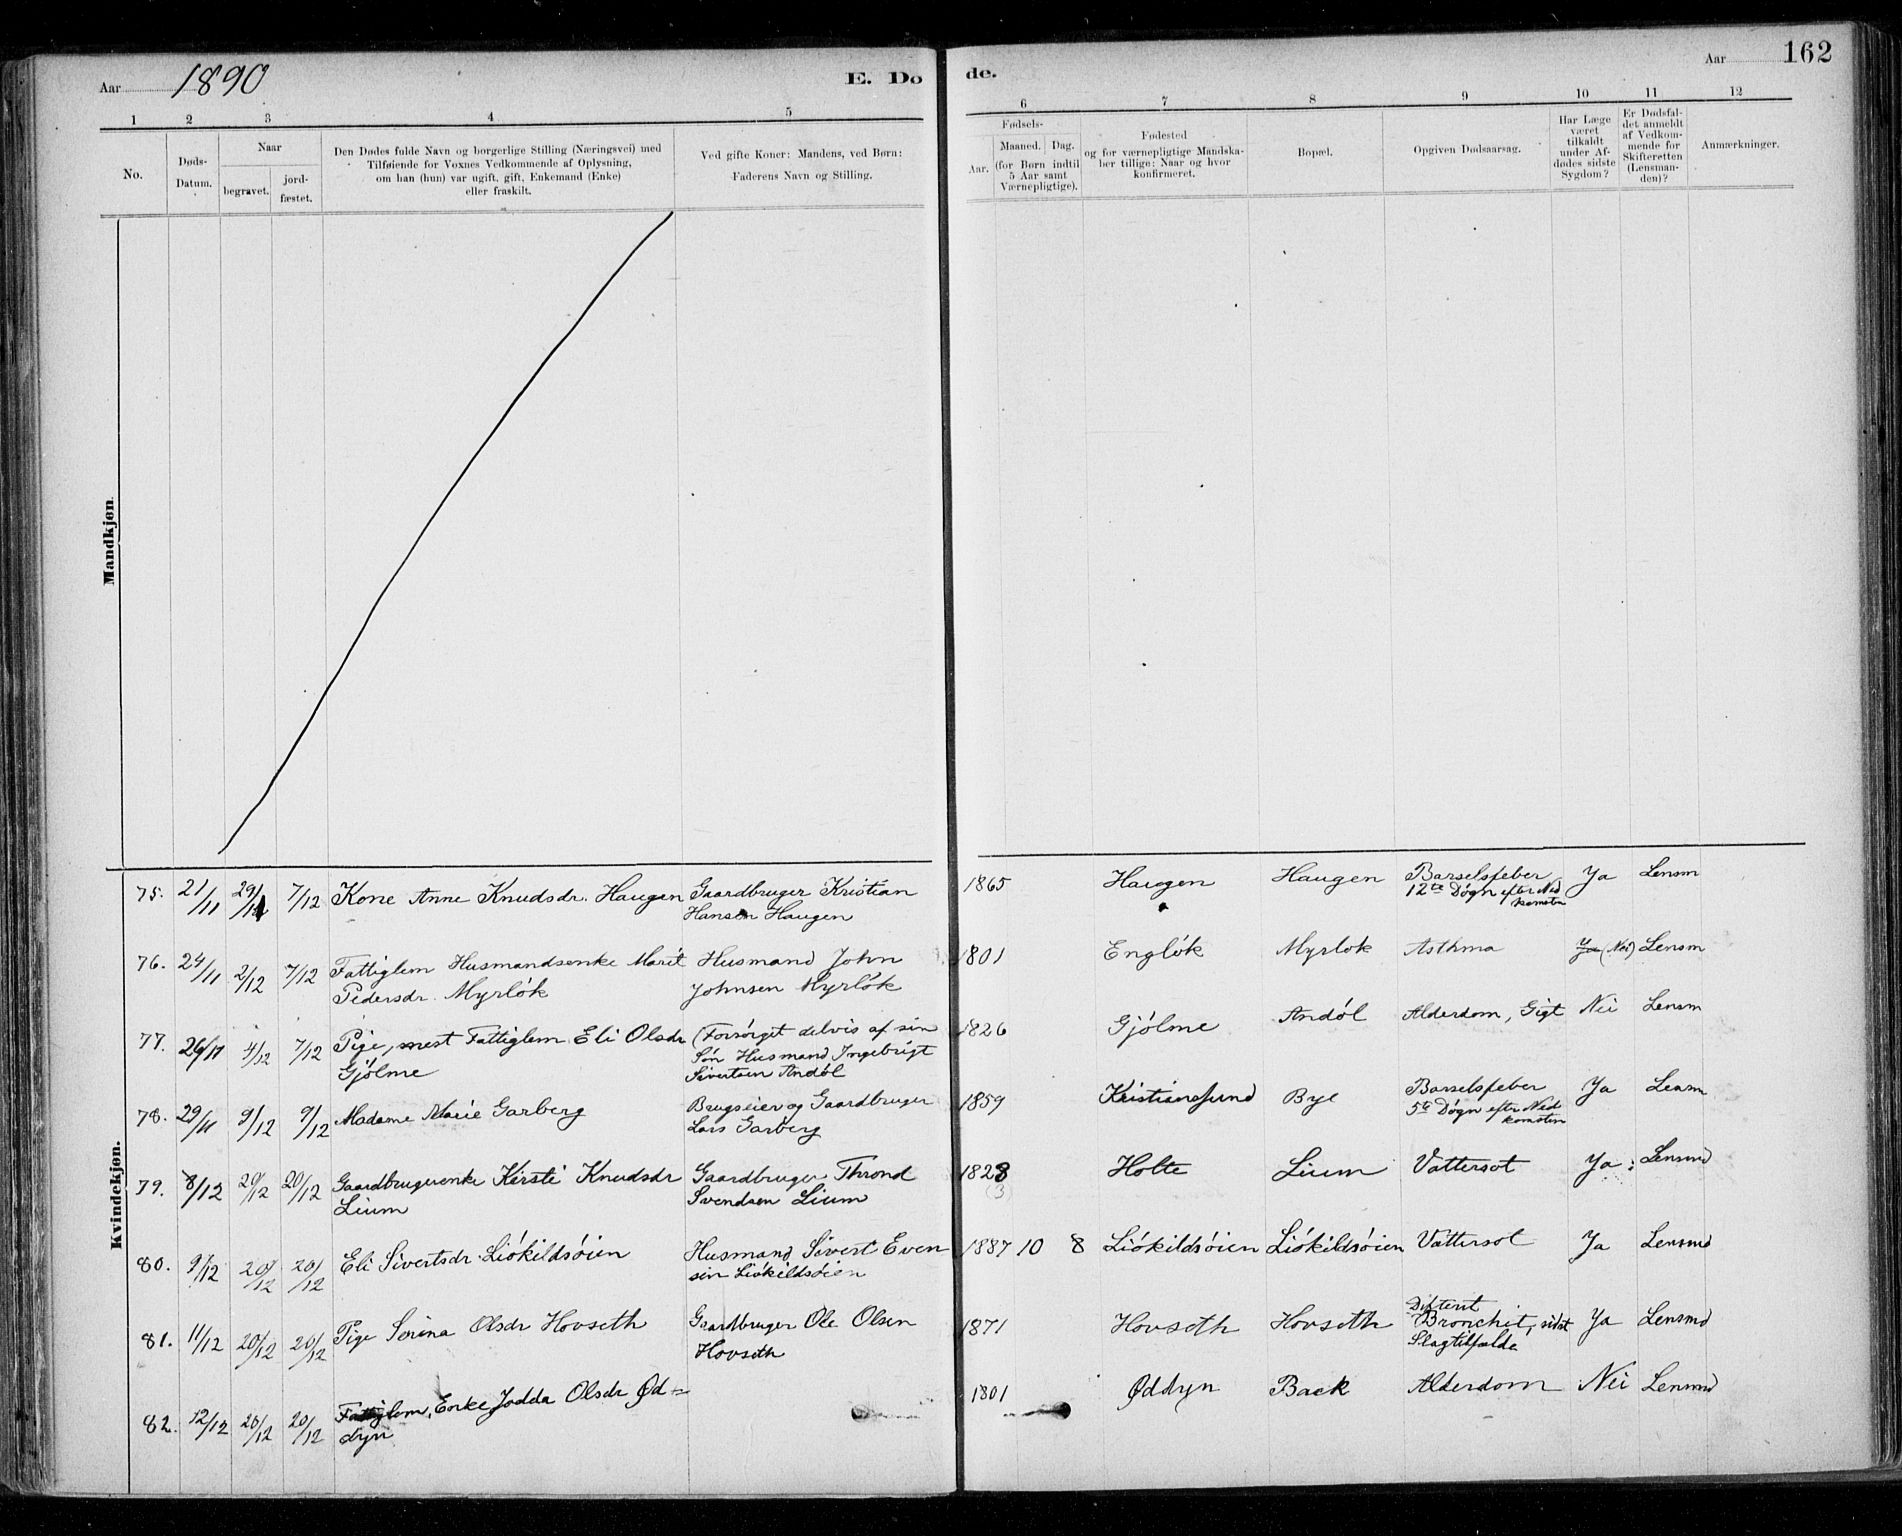 Aar 1890 E. Døde. Aar 162
1 2 3 4 5 6 7 8 9 10 11 12
No.
Døds-
Datum.
Naar
begravet.
jord-
fæstet.
Den Dødes fulde Navn og borgerlige Stilling (Næringsvei) med
Tilføiende for Voxnes Vedkommende af Oplysning,
om han (hun) var ugift, gift, Enkemand (Enke)
eller fraskilt.
Ved gifte Koner: Mandens, ved Børn:
Faderens Navn og Stilling.
Fødsels-
Aar.
Maaned. Dag.
(for Børn indtil
5 Aar samt
Værnepligtige).
Fødested
og for værnepligtige Mandska-
ber tillige: Naar og hvor
konfirmeret.
Bopæl.
Opgiven Dødsaarsag.
Har Læge
været
tilkaldt
under Af-
dødes sidste
Sygdom?
Er Dødsfal-
det anmeldt
af Vedkom-
mende for
Skifteretten
(Lensman-
den)?
Anmærkninger.
Mandkjøn.
Kvindekjøn.
75. 21/11 29/11 7/12 Kone Anne Knudsdr. Haugen Gaardbruger Kristian 1865 Haugen Haugen Barselsfeber Ja Lensm
Hansen Haugen 12te Døgn efter Ned
komsten
76. 24/11 2/12 7/12 Fattiglem Husmandsenke Marit Husmand John 1801 Engløk Myrløk Asthma Ja (Nei) Lensm
Pedersdr. Myrløk Johnsen Myrløk
77. 26/11 4/12 7/12 Pige, mest Fattiglem Eli Olsdr (Forsørget delvis af sin 1826 Gjølme Andøl Alderdom, Gigt Nei Lensm
Gjølme Søn Husmand Ingebrigt
Sivertsen Andøl
78. 29/11 9/12 9/12 Madame Marie Garberg Brugseier og Gaardbruger 1859 Kristiansund Bye Barselsfeber Ja Lensm
Lars Garberg 5te Døgn efter Ned
komsten
79. 8/12 20/12 20/12 Gaardbrugerenke Kirsti Knudsdr Gaardbruger Thrond 1828 Holte Lium Vattersot Ja Lensmd
Lium Svendsen Lium (3)
80. 9/12 20/12 20/12 Eli Sivertsdr. Liøkildsøien Husmand Sivert Even 1887 10 8 Liøkildsøien Liøkildsøien Vattersot Ja Lensmd
sen Liøkildsøien
81. 11/12 20/12 20/12 Pige Serina Olsdr Hovseth Gaardbruger Ole Olsen 1871 Hovseth Hovseth Difterit Ja Lensmd
Hovseth Bronchit, sidst
Slagtilfælde
82. 12/12 20/12 20/12 Fattiglem, Enke Jodda Olsdr Ød= 1801 Øddyn Back Alderdom Nei Lensmd
dyn